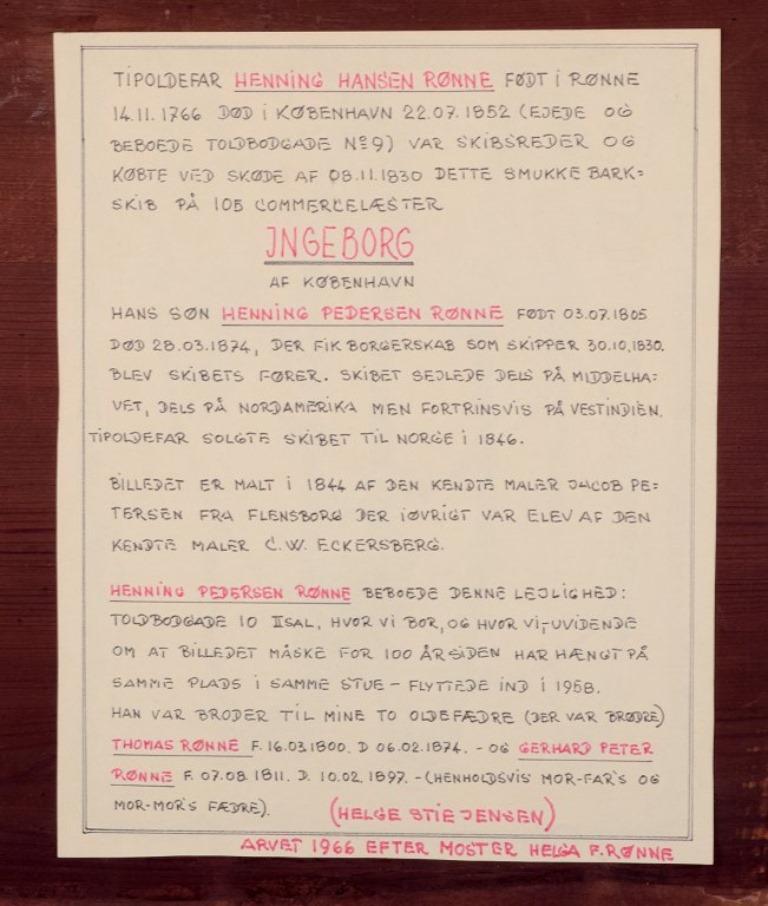 TIPOLDEFAR HENNING HANSEN RØNNE FØDT i RØNNE
14.11.1766 DØD i KØBENHAVN 22.07.1852 (EJEDE OG
BEBOEDE TOLDBODGADE Nº9) VAR SKIBSREDER OG
KØBTE VED SKØDE AF 08.11.1830 DETTE SMUKKE BARK=
SKIB PÅ 105 COMMERCELÆSTER
INGEBORG
AF KØBENHAVN
HANS SØN HENNING PEDERSEN RØNNE FØDT 03.07.1805
DØD 28.03.1874, DER FIK BORGERSKAB SOM SKIPPER 30.10.1830.
BLEV SKIBETS FØRER. SKIBET SEJLEDE DELS PÅ MIDDELHA=
VET, DELS PÅ NORDAMERIKA MEN FORTRINSVIS PÅ VESTINDIEN.
TIPOLDEFAR SOLGTE SKIBET TIL NORGE i 1846.
BILLEDET ER MALT i 1844 AF DEN KENDTE MALER JACOB PE=
TERSEN FRA FLENSBORG DER iØVRIGT VAR ELEV AF DEN
KENDTE MALER C.W. ECKERSBERG.
HENNING PEDERSEN RØNNE BEBOEDE DENNE LEJLIGHED:
TOLDBODGADE 10 II SAL, HVOR Vi BOR, OG HVOR Vi,-UVIDENDE
OM AT BILLEDET MÅSKE FOR 100 ÅR SIDEN HAR HÆNGT PÅ
SAMME PLADS i SAMME STUE - FLYTTEDE IND i 1958.
HAN VAR BRODER TIL MINE TO OLDEFÆDRE (DER VAR BRØDRE)
THOMAS RØNNE F. 16.03.1800. D 06.02.1874. - OG GERHARD PETER
RØNNE F. 07.08.1811. D. 10.02.1897. - (HENHOLDSVIS MOR-FAR'S OG
MOR-MOR'S FÆDRE). (HELGE STIE JENSEN)
ARVET 1966 EFTER MOSTER HELGA F. RØNNE